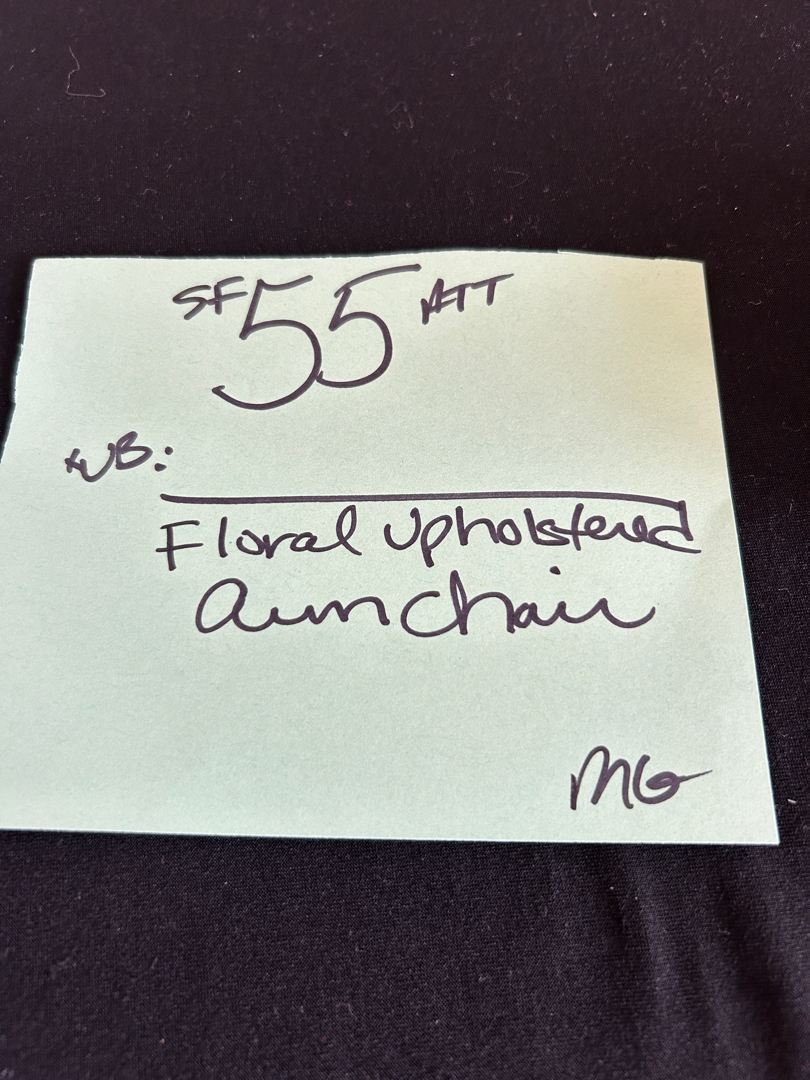 SF 55 ATT
*JB:
Floral Upholstered
armchair
MG